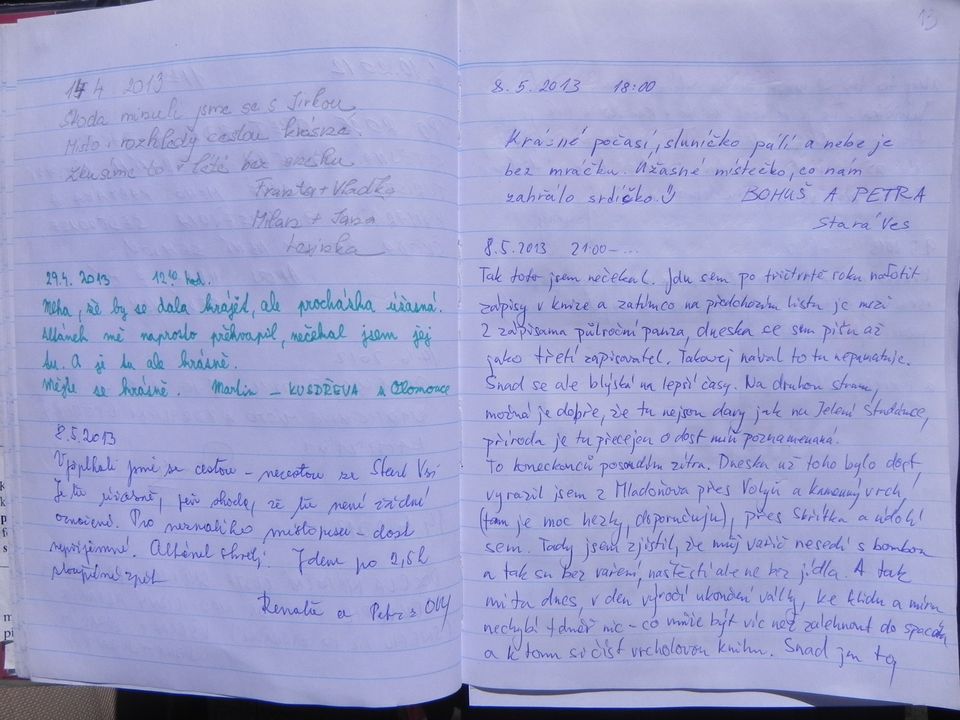 14 4 2013
Škoda minuli jsme se s Jirkou
Místo i rozhledy cestou krásné.
Zkusíme to v létě bez
Franta + Vladka
Milan + Jana
29.4. 2013 1210 hod.
Mlha, že by se dala krájet, ale procházka úžasná.
Altánek mě naprosto překvapil, nečekal jsem jej
tu. A je tu ale krásně.
Mějte se krásně. Martin – z Olomouce
8.5.2013
jsme se cestou – necestou ze Staré Vsi
Je tu úžasně, jen škoda, že tu není žádné
označení. Pro neznalého místopisu – dost
nepříjemné. Altánek skvělý! Jdem po 2,5h
zpět
Renata a Petr z
13
8.5.2013 18:00
Krásné počasí, sluníčko pálí a nebe je
bez mráčku. Úžasné místečko, co nám
zahřálo srdíčko. BOHUŠ A PETRA
Stará Ves
8.5.2013 21:00 – ...
Tak toto jsem nečekal. Jdu sem po tričtvrtě roku nafotit
zápisy v knize a zatímco na předchozím listu je mezi
2 zápisama půlroční pauza, dneska se sem píšu až
jako třetí zapisovatel. Takovej nával to tu nepamatuje.
Snad se ale blýská na lepší časy. Na druhou stranu,
možná je dobře, že tu nejsou davy jak na Jelení Studánce,
příroda je tu přecejen o dost míň poznamenaná.
To koneckonců posoudím zítra. Dneska už toho bylo dost,
vyrazil jsem z Mladoňova přes Volyň a kamenný vrch,
(tam je moc hezky, doporučuju), přes Skřítka a údolí
sem. Tady jsem zjistil, že můj vařič nesedí s bombou
a tak su bez vaření, naštěstí ale ne bez jídla. A tak
mi tu dnes, v den výročí ukončení války, ke klidu a míru
nechybí téměř nic – co může být víc než zalehnout do spacáku
a k tomu si číst vrcholovou knihu. Snad jen ta